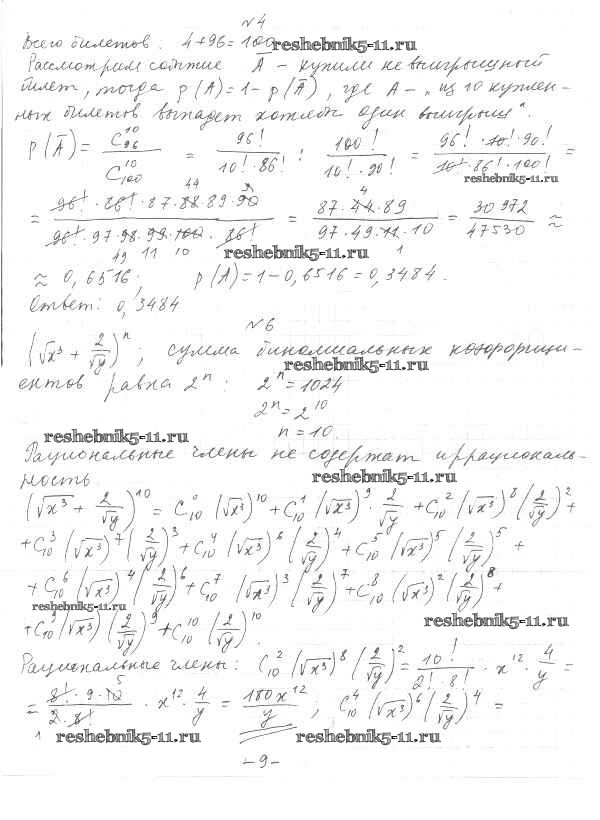 №4
Всего билетов: 4+96=100 reshebnik5-11.ru
Рассмотрим событие Ā – купили невыигрышный
билет, тогда p(A)=1-p(Ā), где A – „из 10 куплен-
ных билетов выпадет хотя бы один выигрыш".
p(Ā) = C₉₆¹⁰ / C₁₀₀¹⁰ = 96! / (10!·86!) : 100! / (10!·90!) = (96!·10!·90!) / (10!·86!·100!) =
reshebnik5-11.ru
= (96!·86!·87·88·89·90) / (96!·97·98·99·100·86!) = (87·44·89) / (97·49·11·10) = 30972 / 47530 ≈
reshebnik5-11.ru
≈ 0,6516. p(A)=1-0,6516=0,3484.
Ответ: 0,3484
№6
(√x³ + 2/√y)ⁿ; сумма биномиальных коэффици-
reshebnik5-11.ru
ентов равна 2ⁿ: 2ⁿ=1024
2ⁿ=2¹⁰
n=10.
reshebnik5-11.ru
Рациональные члены не содержат иррациональ-
ность. reshebnik5-11.ru
(√x³ + 2/√y)¹⁰ = C₁₀⁰ (√x³)¹⁰ + C₁₀¹ (√x³)⁹ · 2/√y + C₁₀² (√x³)⁸ (2/√y)² +
+ C₁₀³ (√x³)⁷ (2/√y)³ + C₁₀⁴ (√x³)⁶ (2/√y)⁴ + C₁₀⁵ (√x³)⁵ (2/√y)⁵ +
+ C₁₀⁶ (√x³)⁴ (2/√y)⁶ + C₁₀⁷ (√x³)³ (2/√y)⁷ + C₁₀⁸ (√x³)² (2/√y)⁸ +
reshebnik5-11.ru
+ C₁₀⁹ (√x³) (2/√y)⁹ + C₁₀¹⁰ (2/√y)¹⁰. reshebnik5-11.ru
Рациональные члены: C₁₀² (√x³)⁸ (2/√y)² = 10! / (2!·8!) · x¹² · 4/y =
= (8!·9·10) / (2·8!) · x¹² · 4/y = 180x¹² / y; C₁₀⁴ (√x³)⁶ (2/√y)⁴ =
reshebnik5-11.ru reshebnik5-11.ru
–9–